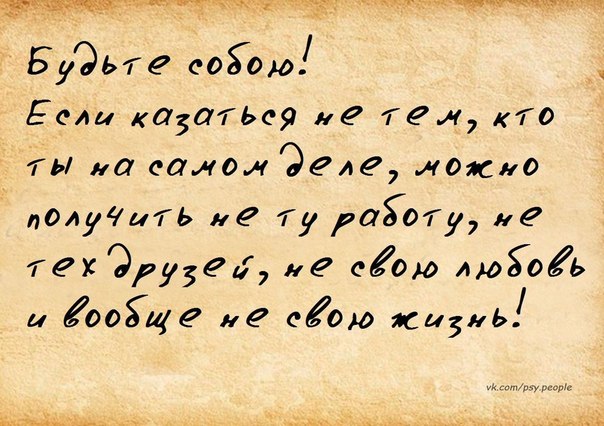 Будьте собою!
Если казаться не тем, кто
ты на самом деле, можно
получить не ту работу, не
тех друзей, не свою любовь
и вообще не свою жизнь!
vk.com/psy.people